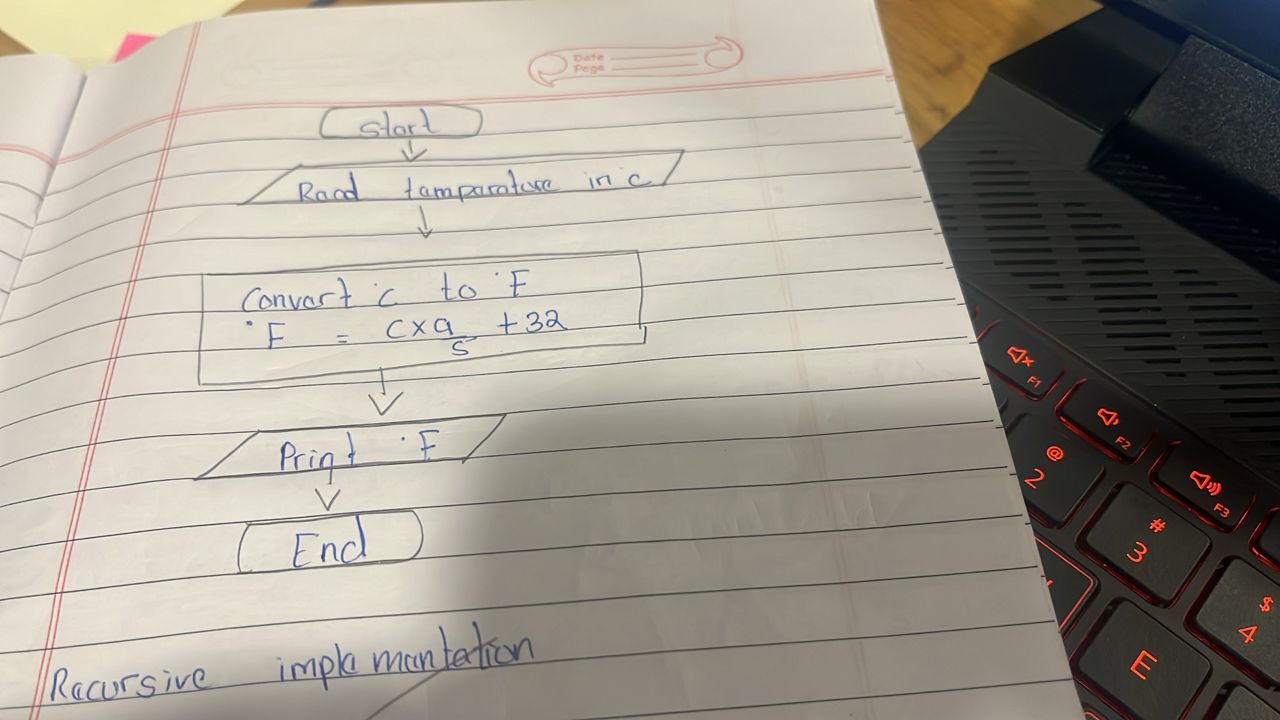 Date
Page
Start
Raad tamparature in c
Convart °c to °F
°F = c×9/5 +32
Print °F
End
Racursive implamantation
F1
F2
F3
@
2
#
3
$
4
E